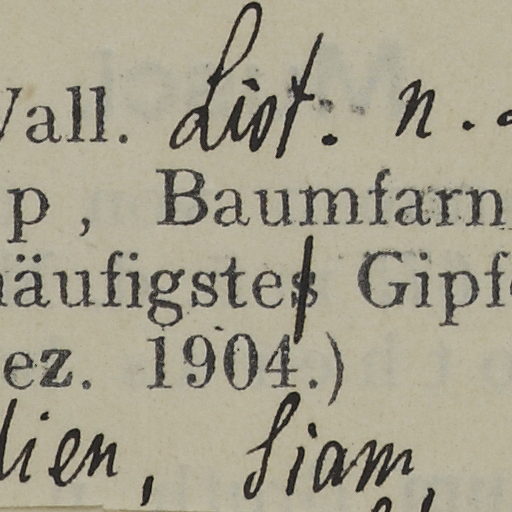 Wall. List. n.
p, Baumfarn
häufigstes Gipf
ez. 1904.)
dien, Siam,